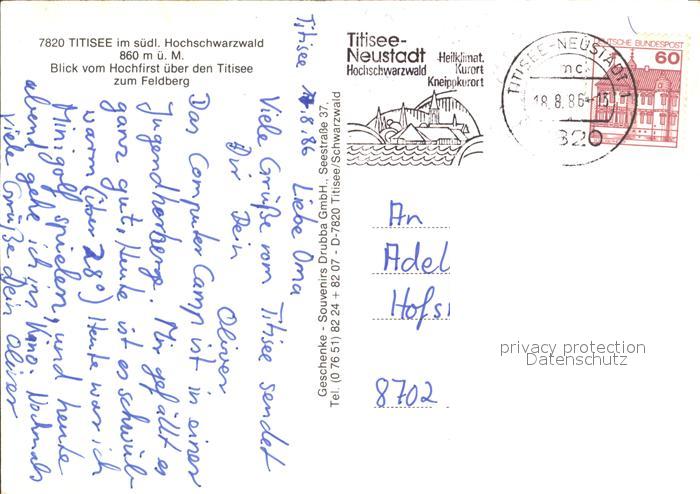 7820 TITISEE im südl. Hochschwarzwald
860 m ü. M.
Blick vom Hochfirst über den Titisee
zum Feldberg
Titisee 8.86 Liebe Oma
Viele Grüße vom Titisee sendet
Dir Dein
Oliver
Das Computer Camp ist in einer
Jugendherberge. Mir gefällt es
ganz gut. Heute ist es schwül
warm (über 28°) Heute war ich
Minigolf spielen, und heute
abend gehe ich ins Kino. Nochmals
viele Grüße Dein Oliver
Geschenke - Souvenirs Drubba GmbH., Seestraße 37,
Tel. (0 76 51) 82 24 + 82 07 - D-7820 Titisee/Schwarzwald
Titisee-
Neustadt
Hochschwarzwald
Heilklimat.
Kurort
Kneippkurort
TITISEE-NEUSTADT 1
mc
18.8.86-15
7820
DEUTSCHE BUNDESPOST
60
An
Adel
Hofs
8702
privacy protection
Datenschutz